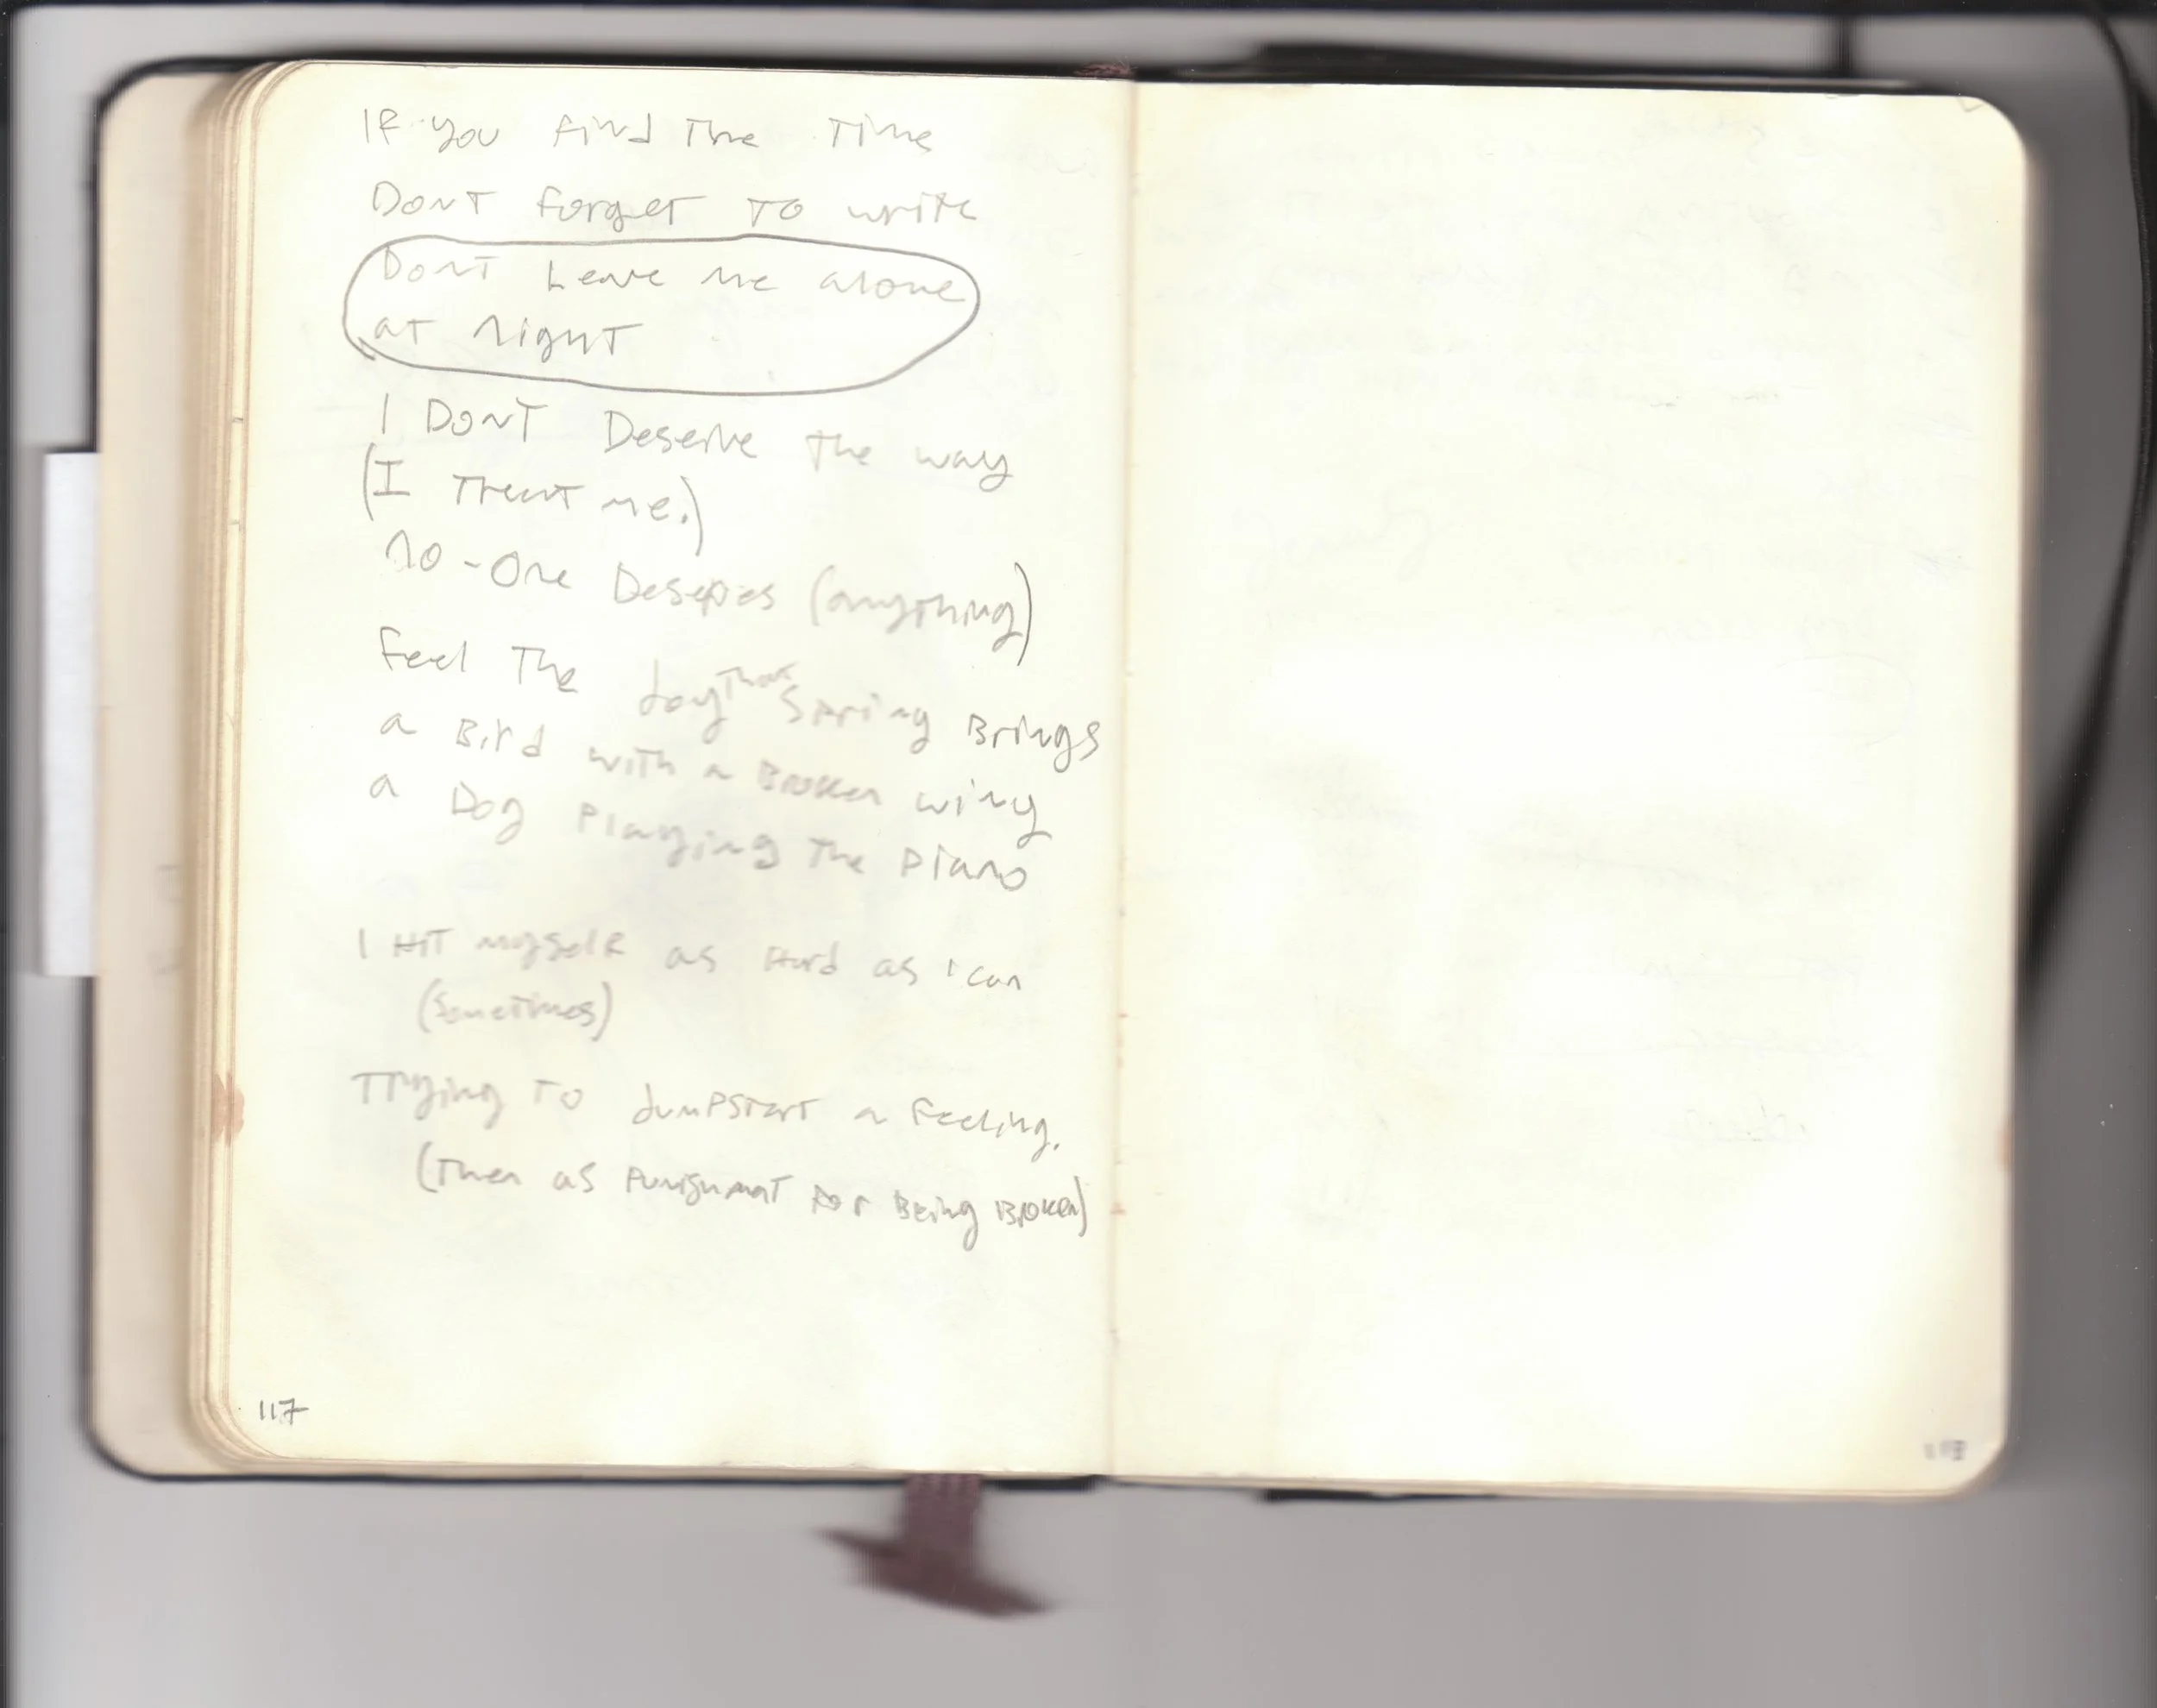 If you find The Time
Dont forget to write
Dont Leave me alone
at Night
I Dont Deserve The way
(I Treat me.)
No-One Deserves (anything)
Feel The Joy That Spring Brings
a Bird with a Broken wing
a Dog Playing The Piano
I HIT myself as Hard as I can
(Sometimes)
Trying To Jumpstart a Feeling.
(Then as Punishment for Being Broken)
117
118